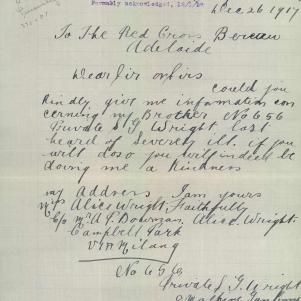 Formally acknowledged, 12/1/18
Dec 26 1917
To The Red Cross Bereau
Adelaide
Dear Sir or Sirs
could you
kindly give me infamation con
cerning my Brother No 656
Private S G Wright last
heard of Severely ill. if you
will do so you will indeed be
doing me a kindness
my Address I am yours
Mrs Alice Wright Faithfully
C/o Mr A J Dowman, Alice Wright
Campbell Park
via Milang
No 656
Private S G Wright